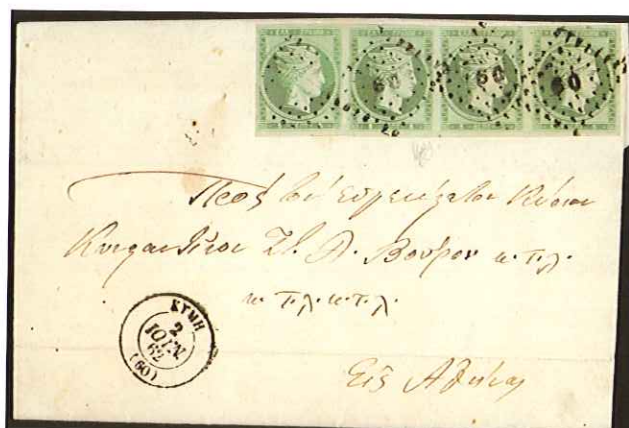 60 60 60
Πρὸς τὸν εὐγενέστατον Κύριον
Κωνσταντῖνον Στ. Δ. Βοῦρον κ.τ.λ.
κ.τ.λ. κ.τ.λ.
ΚΥΜΗ
2
ΙΟΥΝ
62
(60)
Εἰς Ἀθήνας